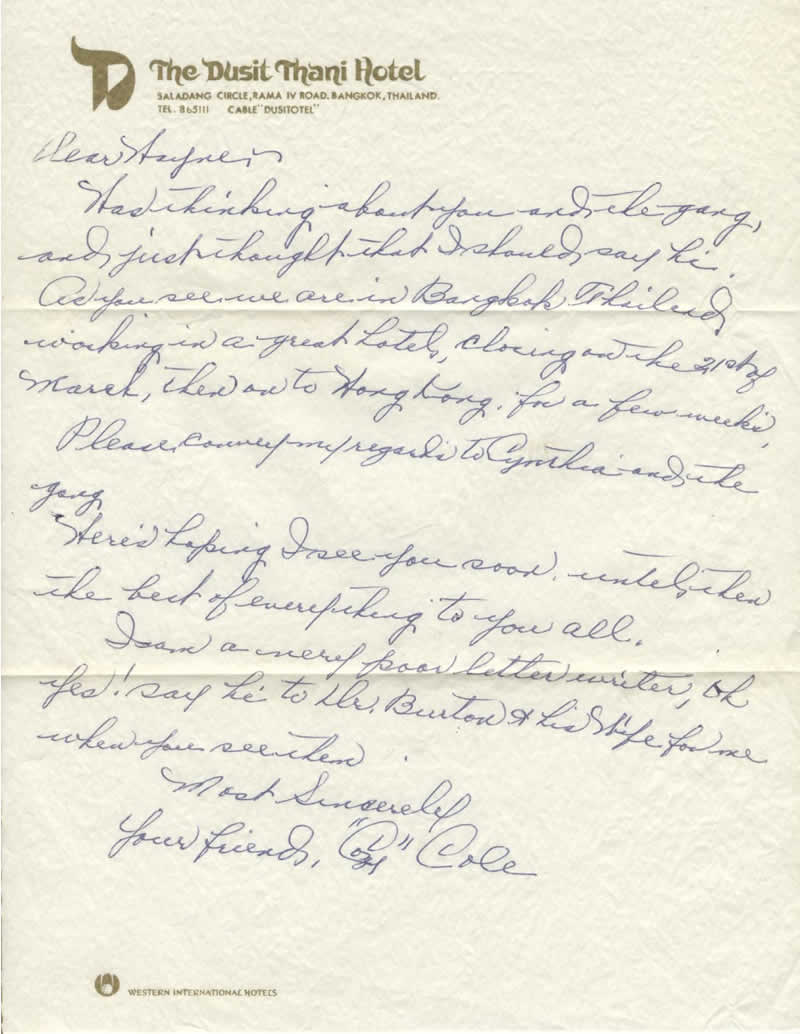 The Dusit Thani Hotel
SALADANG CIRCLE, RAMA IV ROAD. BANGKOK, THAILAND.
TEL. 865111 CABLE "DUSITOTEL"
Dear Haynes
Was thinking about you and the gang,
and just thought that I should say hi.
As you see we are in Bangkok Thailand,
working in a great hotel, closing on the 21st of
March, then on to Hong Kong, for a few weeks,
Please, convey my regards to Cynthia and the
gang
Here's hoping I see you soon, until then
the best of everything to you all.
I am a very poor letter writer, Oh
yes! say hi to Dr. Burton & his wife for me
when you see them.
Most Sincerely
Your friend, "Cozy" Cole
WESTERN INTERNATIONAL HOTELS